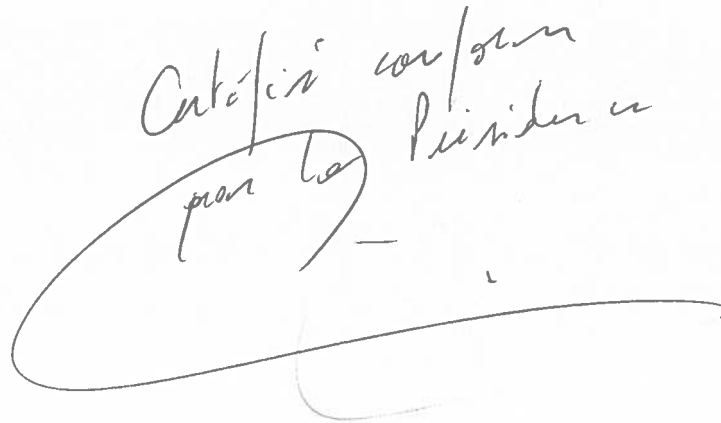 Certifié conforme
par la Présidence